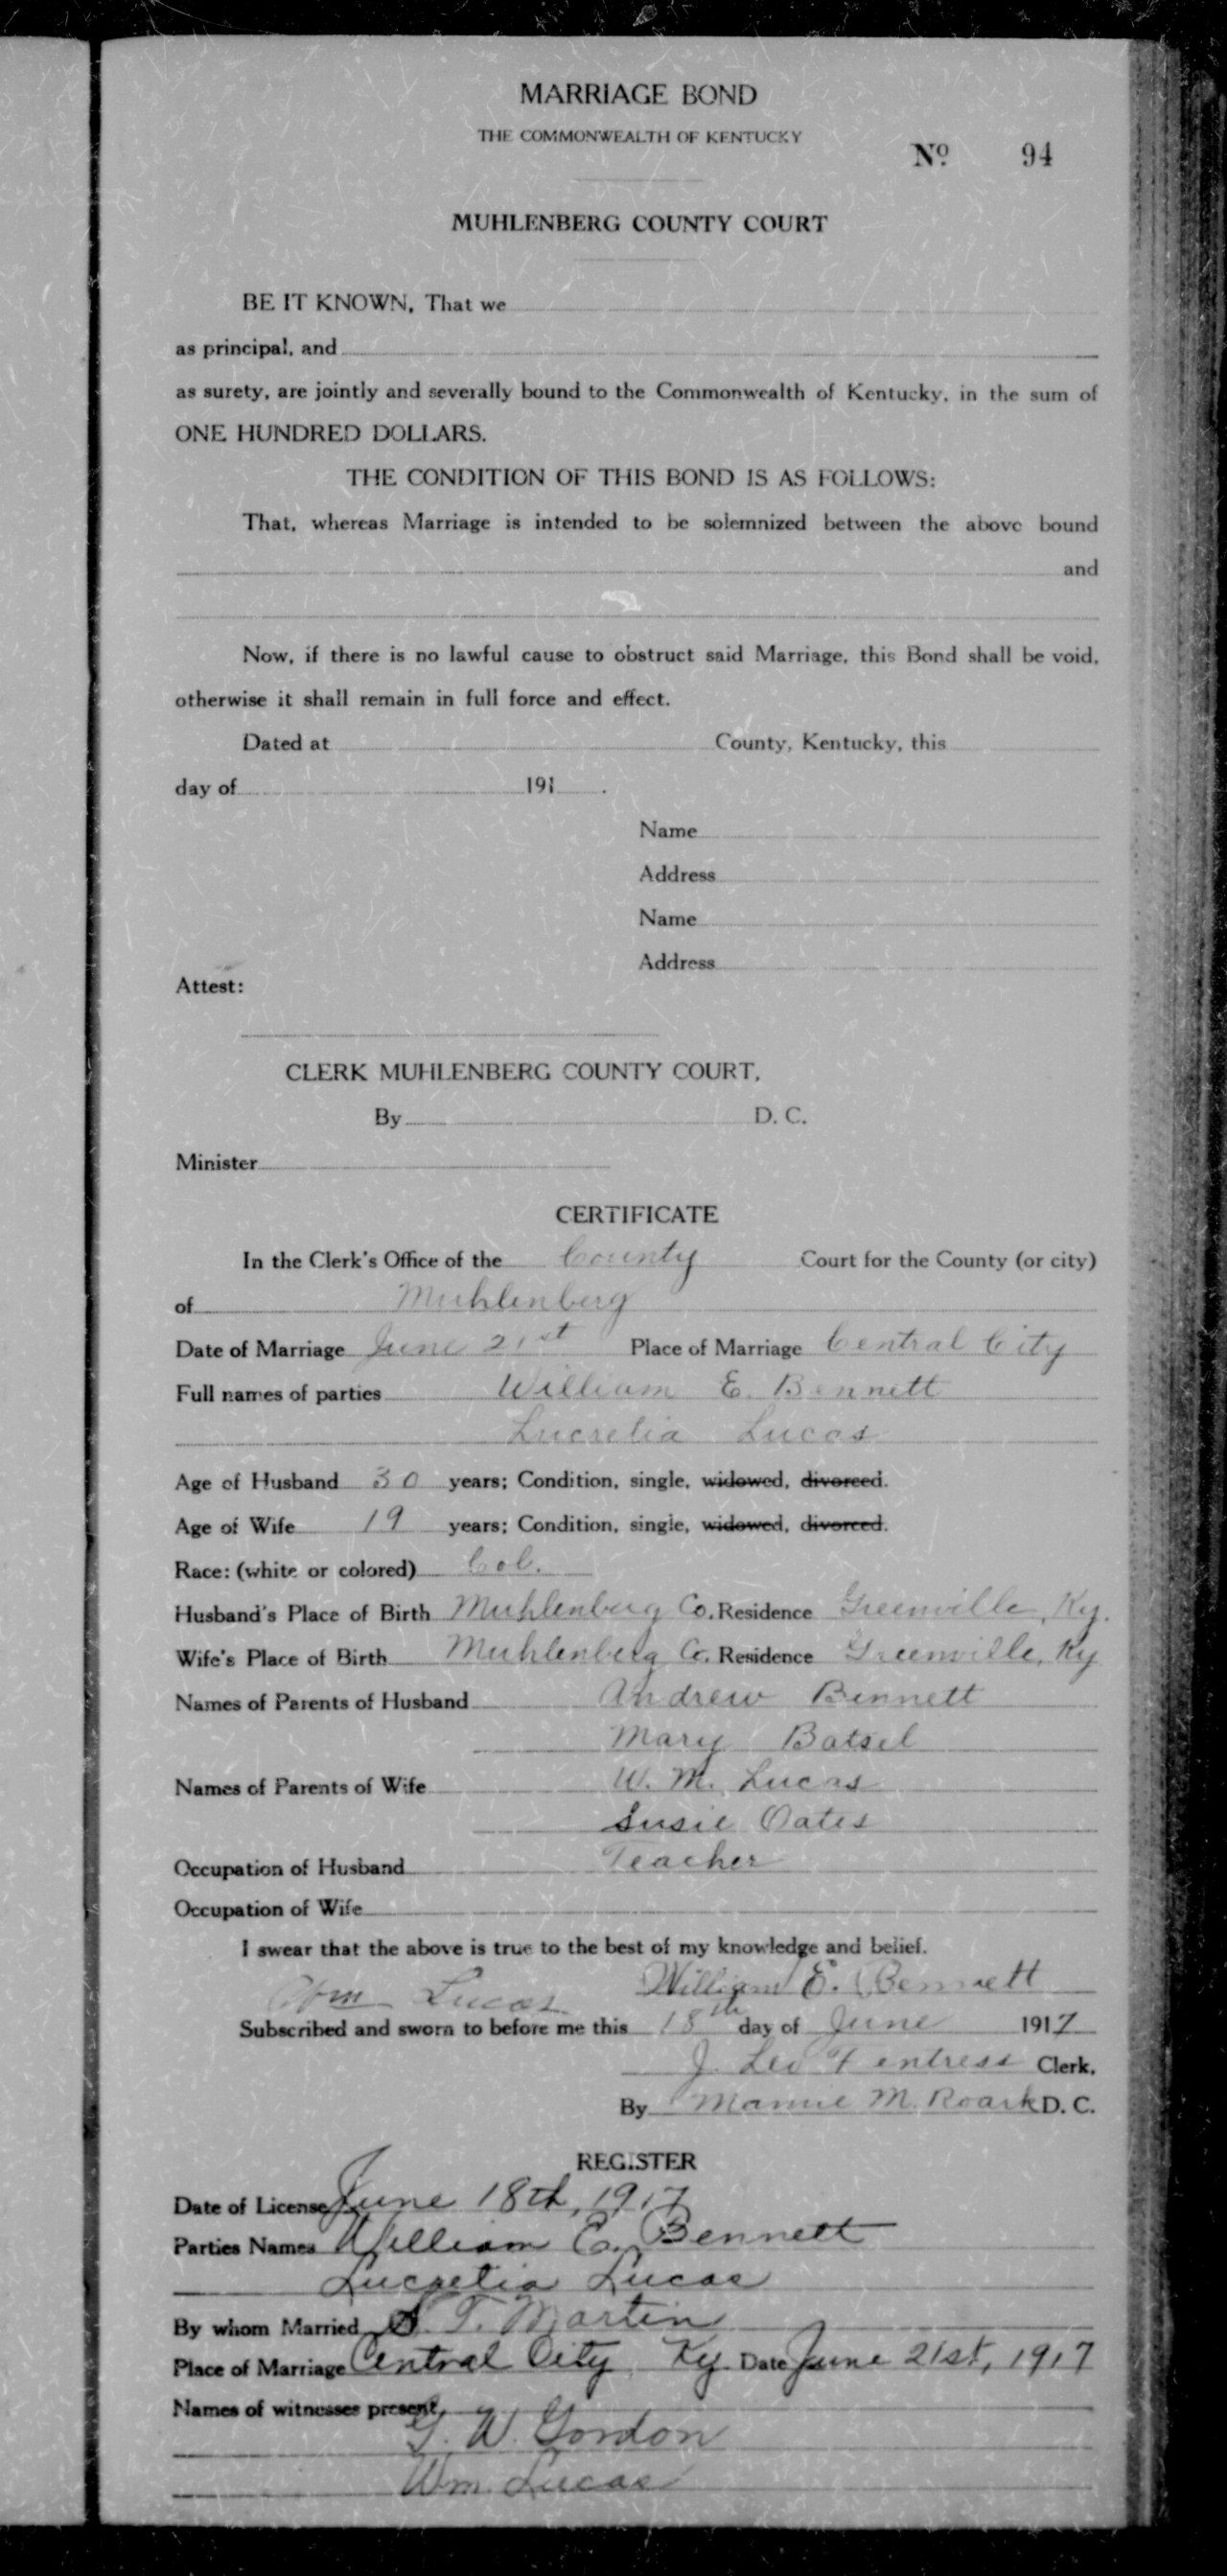 MARRIAGE BOND
THE COMMONWEALTH OF KENTUCKY
No. 94
MUHLENBERG COUNTY COURT
BE IT KNOWN, That we
as principal, and
as surety, are jointly and severally bound to the Commonwealth of Kentucky, in the sum of
ONE HUNDRED DOLLARS.
THE CONDITION OF THIS BOND IS AS FOLLOWS:
That, whereas Marriage is intended to be solemnized between the above bound
and
Now, if there is no lawful cause to obstruct said Marriage, this Bond shall be void,
otherwise it shall remain in full force and effect.
Dated at County, Kentucky, this
day of 191 .
Name
Address
Name
Address
Attest:
CLERK MUHLENBERG COUNTY COURT,
By D. C.
Minister
CERTIFICATE
In the Clerk's Office of the County Court for the County (or city)
of Muhlenberg
Date of Marriage June 21st Place of Marriage Central City
Full names of parties William E. Bennett
Lucretia Lucas
Age of Husband 30 years; Condition, single, widowed, divorced.
Age of Wife 19 years; Condition, single, widowed, divorced.
Race: (white or colored) Col.
Husband's Place of Birth Muhlenberg Co. Residence Greenville, Ky.
Wife's Place of Birth Muhlenberg Co. Residence Greenville, Ky
Names of Parents of Husband Andrew Bennett
Mary Batsel
Names of Parents of Wife W. M. Lucas
Susie Oates
Occupation of Husband Teacher
Occupation of Wife
I swear that the above is true to the best of my knowledge and belief.
Wm Lucas William E. Bennett
Subscribed and sworn to before me this 18th day of June 1917
J. Leo Fentress Clerk.
By Mamie M. Roark D. C.
REGISTER
Date of License June 18th, 1917
Parties Names William E. Bennett
Lucretia Lucas
By whom Married T. Martin
Place of Marriage Central City, Ky. Date June 21st, 1917
Names of witnesses present,
G. W. Gordon
Wm. Lucas